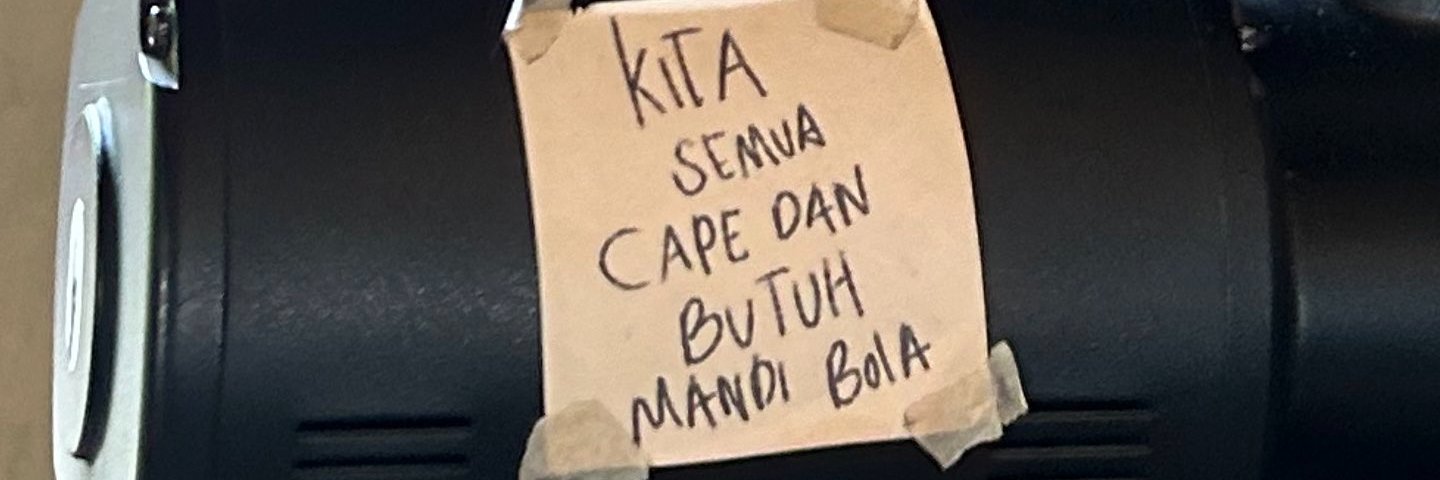 KITA
SEMUA
CAPE DAN
BUTUH
MANDI BOlA